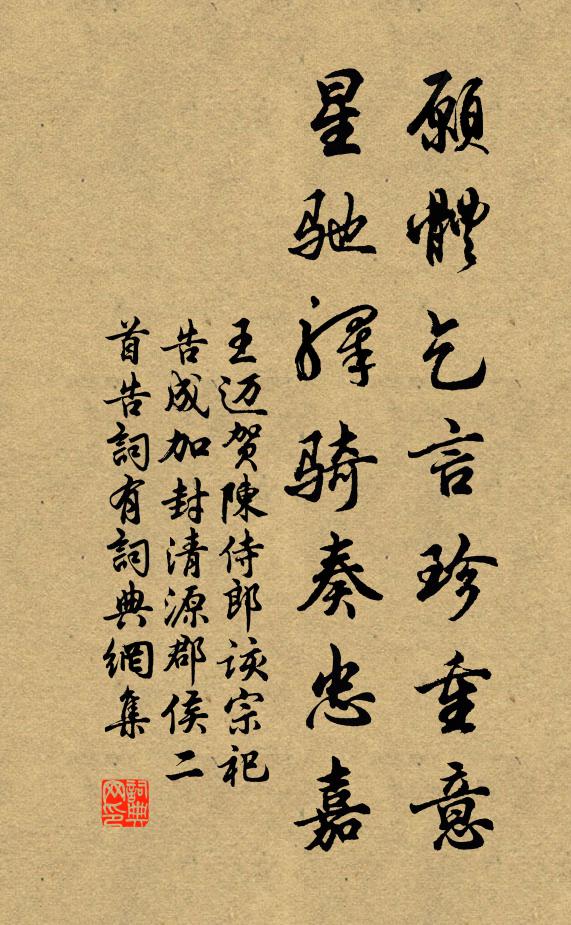 願體乞言珍重意
星驰驛骑奏忠嘉
王迈贺陳侍郎該宗祀
告成加封清源郡侯二
首告詞有詞典網集
詞典
网印